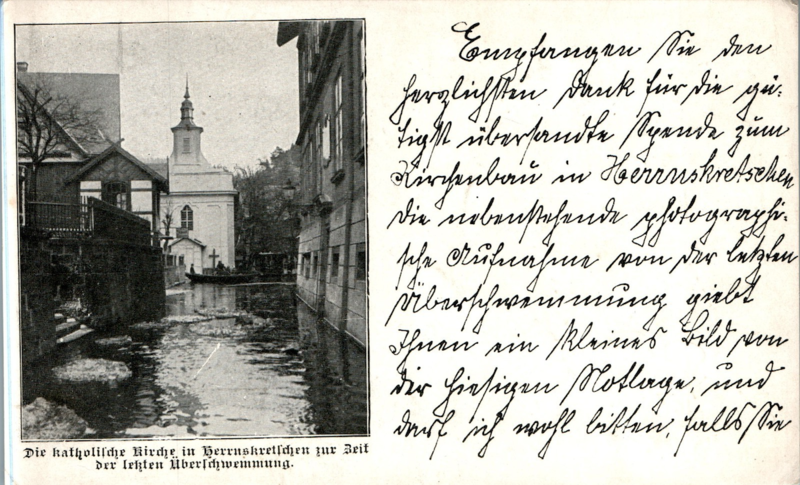 Empfangen Sie den
herzlichsten Dank für die gü-
tigst übersandte Spende zum
Kirchenbau in Herrnskretschen
die nebenstehende photographi-
sche Aufnahme von der letzten
Überschwemmung giebt
Ihnen ein kleines Bild von
der hiesigen Notlage, und
darf ich wohl bitten, falls Sie
Die katholische Kirche in Herrnskretschen zur Zeit
der letzten Überschwemmung.